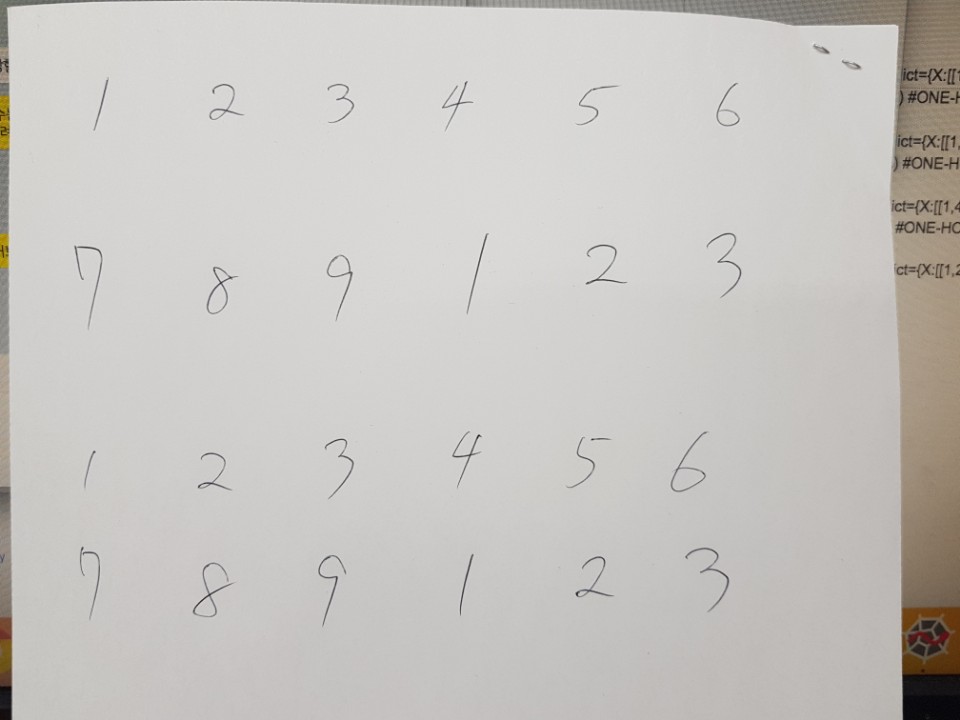 1 2 3 4 5 6
7 8 9 1 2 3
1 2 3 4 5 6
7 8 9 1 2 3
ict={X:[[1
) #ONE-H
ict={X:[[1,
) #ONE-H
ict={X:[[1,4
#ONE-HO
ct={X:[[1,2